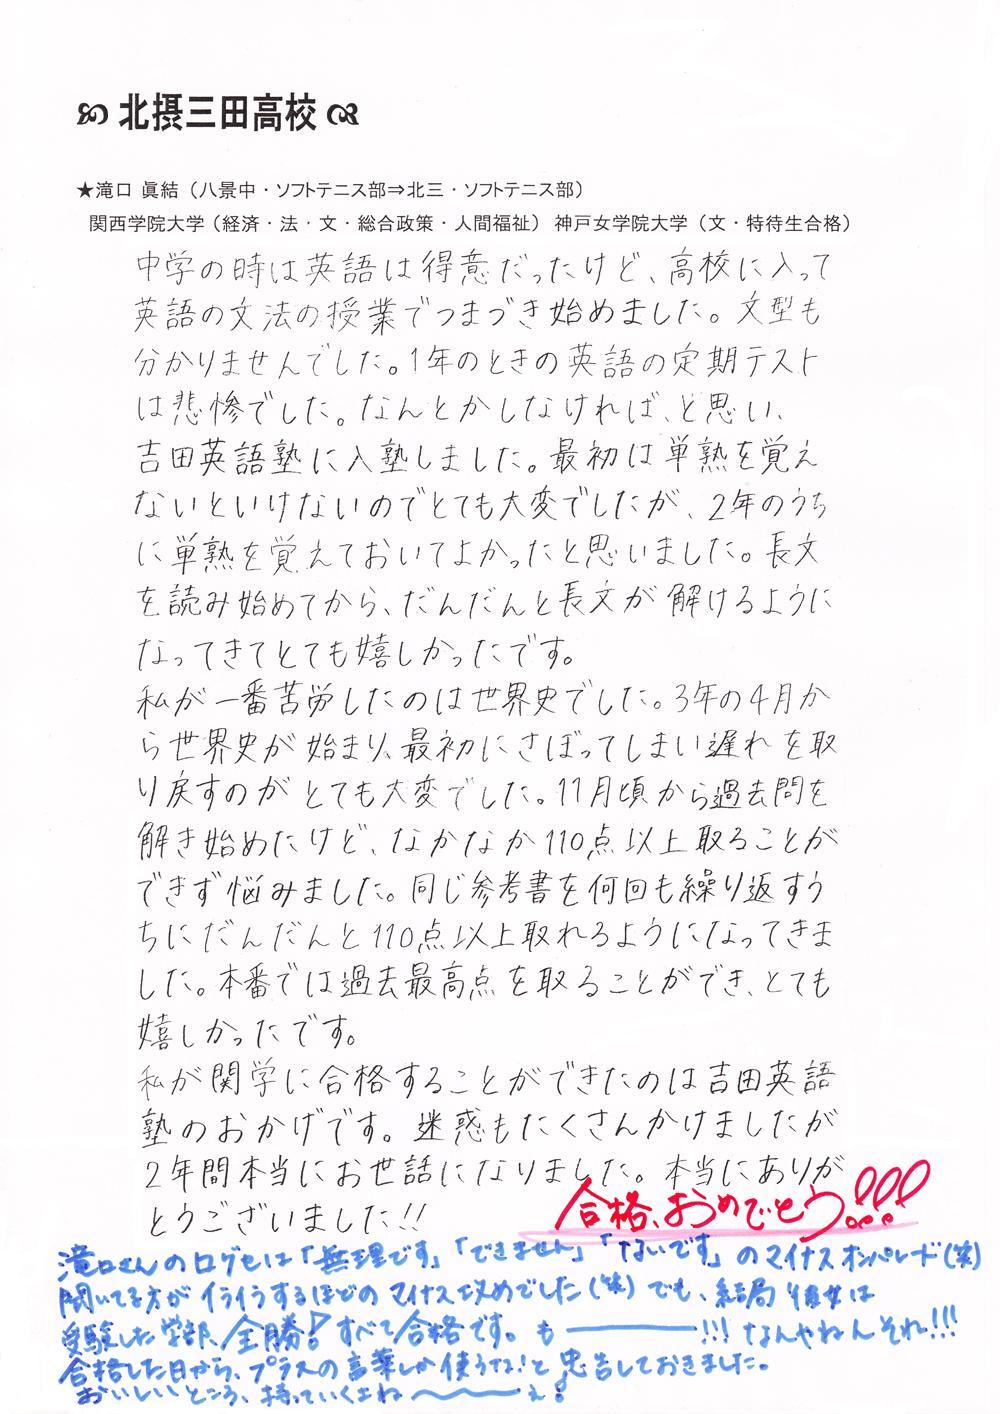 北摂三田高校
★滝口 眞結（八景中・ソフトテニス部⇒北三・ソフトテニス部）
関西学院大学（経済・法・文・総合政策・人間福祉） 神戸女学院大学（文・特待生合格）
中学の時は英語は得意だったけど、高校に入って
英語の文法の授業でつまづき始めました。文型も
分かりませんでした。1年のときの英語の定期テスト
は悲惨でした。なんとかしなければ、と思い、
吉田英語塾に入塾しました。最初は単熟を覚え
ないといけないのでとても大変でしたが、2年のうち
に単熟を覚えておいてよかったと思いました。長文
を読み始めてから、だんだんと長文が解けるように
なってきてとても嬉しかったです。
私が一番苦労したのは世界史でした。3年の4月か
ら世界史が始まり、最初にさぼってしまい遅れを取
り戻すのがとても大変でした。11月頃から過去問を
解き始めたけど、なかなか110点以上取ることが
できず悩みました。同じ参考書を何回も繰り返すう
ちにだんだんと110点以上取れるようになってきま
した。本番では過去最高点を取ることができ、とても
嬉しかったです。
私が関学に合格することができたのは吉田英語
塾のおかげです。迷惑もたくさんかけましたが
2年間本当にお世話になりました。本当にありが
とうございました!!
合格、おめでとう!!!
滝口さんの口グセは「無理です」「できません」「ないです」のマイナスオンパレード(笑)
聞いてる方がイライラするほどのマイナス攻めでした(笑)でも、結局彼女は
受験した学部、全勝!すべて合格です。も―――!!!なんやねんそれ!!!
合格した日から、プラスの言葉しか使うな!と忠告しておきました。
おいしいところ、持っていくよね〜〜ぇ!